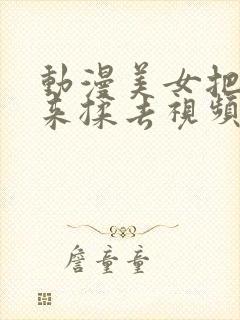 動漫美女把
来揉去視頻
詹童童